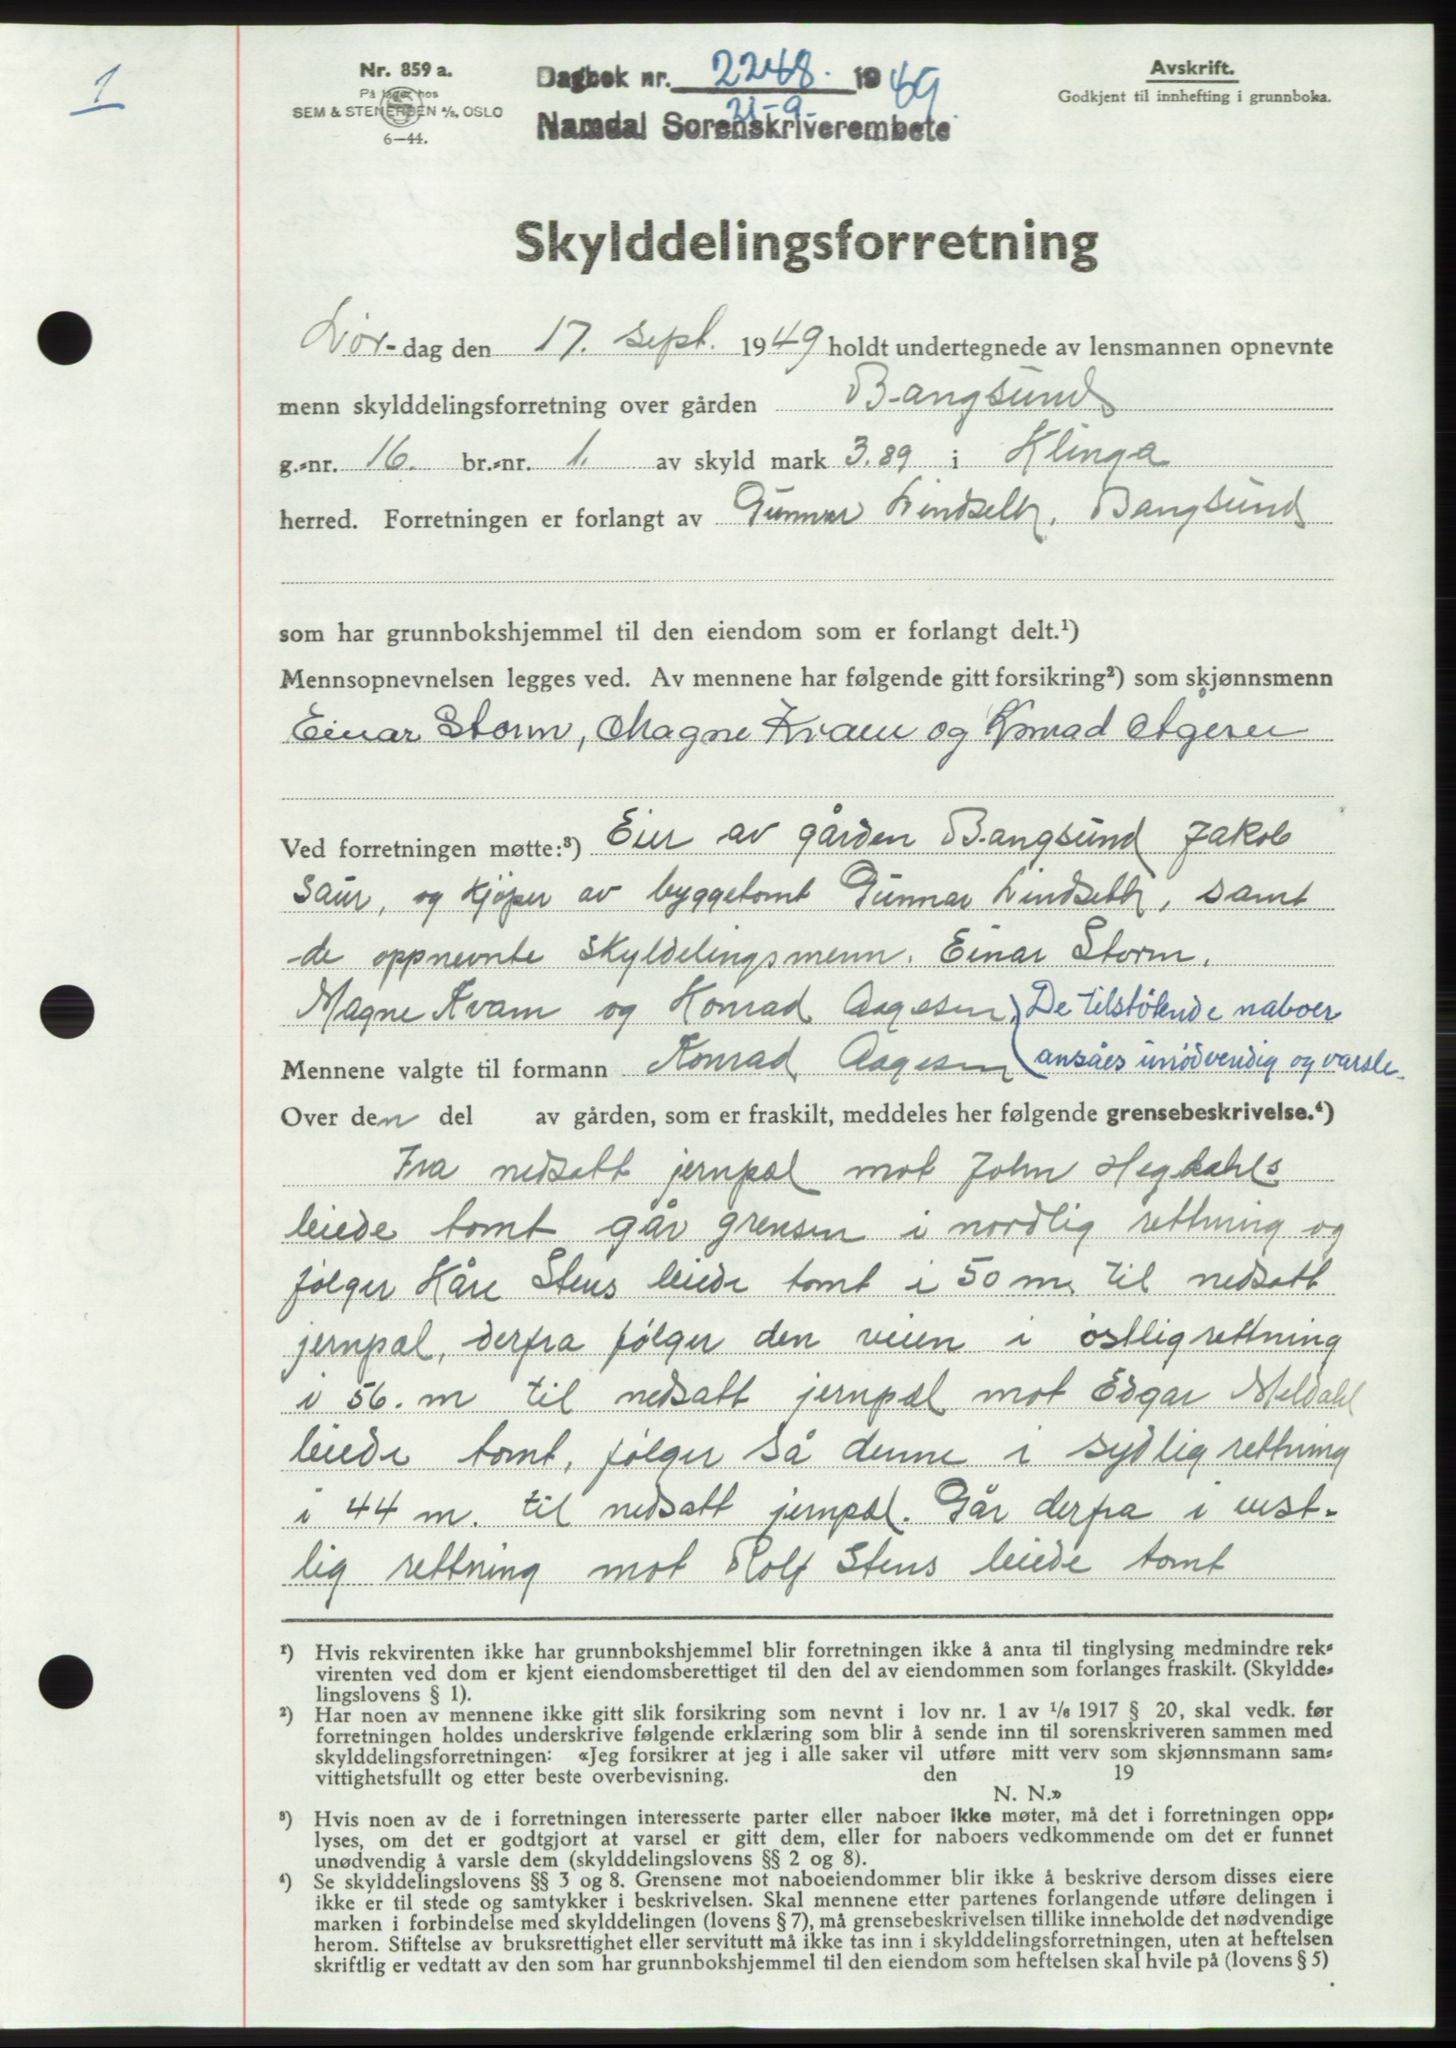 1
Nr. 859 a.
På lager hos
SEM & STENERSEN A/S, OSLO
6—44.
Dagbok nr. 2248. 1949
21-9-
Namdal Sorenskriverembete
Avskrift.
Godkjent til innhefting i grunnboka.
Skylddelingsforretning
Lør-dag den 17. sept. 1949 holdt undertegnede av lensmannen opnevnte
menn skylddelingsforretning over gården Bangsund
g.-nr. 16. br.-nr. 1. av skyld mark 3.89 i Klinga
herred. Forretningen er forlangt av Gunnar Lindseth, Bangsund
som har grunnbokshjemmel til den eiendom som er forlangt delt.¹)
Mennsopnevnelsen legges ved. Av mennene har følgende gitt forsikring²) som skjønnsmenn
Einar Storm, Magne Kvam og Konrad Agesen
Ved forretningen møtte:³) Eier av gården Bangsund Jakob
Saur, og kjøper av byggetomt Gunnar Lindseth, samt
de oppnevnte skyldelingsmenn. Einar Storm,
Magne Kvam og Konrad Aagesen. De tilstøtende naboer
ansåes unødvendig og varsle.
Mennene valgte til formann Konrad Aagesen
Over den del av gården, som er fraskilt, meddeles her følgende grensebeskrivelse.⁴)
Fra nedsatt jernpæl mot John Hegdahls
leiede tomt går grensen i nordlig rettning og
følger Kåre Stens leiede tomt i 50 m. til nedsatt
jernpæl, derfra følger den veien i østlig rettning
i 56. m til nedsatt jernpæl mot Edgar Meldahl
leiede tomt, følger så denne i sydlig rettning
i 44 m. til nedsatt jernpæl. Går derfra i vest-
lig rettning mot Rolf Stens leiede tomt
¹) Hvis rekvirenten ikke har grunnbokshjemmel blir forretningen ikke å anta til tinglysing medmindre rek-
virenten ved dom er kjent eiendomsberettiget til den del av eiendommen som forlanges fraskilt. (Skyldde-
lingslovens § 1).
²) Har noen av mennene ikke gitt slik forsikring som nevnt i lov nr. 1 av 1/6 1917 § 20, skal vedk. før
forretningen holdes underskrive følgende erklæring som blir å sende inn til sorenskriveren sammen med
skylddelingsforretningen: «Jeg forsikrer at jeg i alle saker vil utføre mitt verv som skjønnsmann sam-
vittighetsfullt og etter beste overbevisning. den 19
N. N.»
³) Hvis noen av de i forretningen interesserte parter eller naboer ikke møter, må det i forretningen opp-
lyses, om det er godtgjort at varsel er gitt dem, eller for naboers vedkommende om det er funnet
unødvendig å varsle dem (skylddelingslovens §§ 2 og 8).
⁴) Se skylddelingslovens §§ 3 og 8. Grensene mot naboeiendommer blir ikke å beskrive dersom disses eiere
ikke er til stede og samtykker i beskrivelsen. Skal mennene etter partenes forlangende utføre delingen i
marken i forbindelse med skylddelingen (lovens § 7), må grensebeskrivelsen tillike inneholde det nødvendige
herom. Stiftelse av bruksrettighet eller servitutt må ikke tas inn i skylddelingsforretningen, uten at heftelsen
skriftlig er vedtatt av den som har grunnbokshjemmel til den eiendom som heftelsen skal hvile på (lovens § 5)